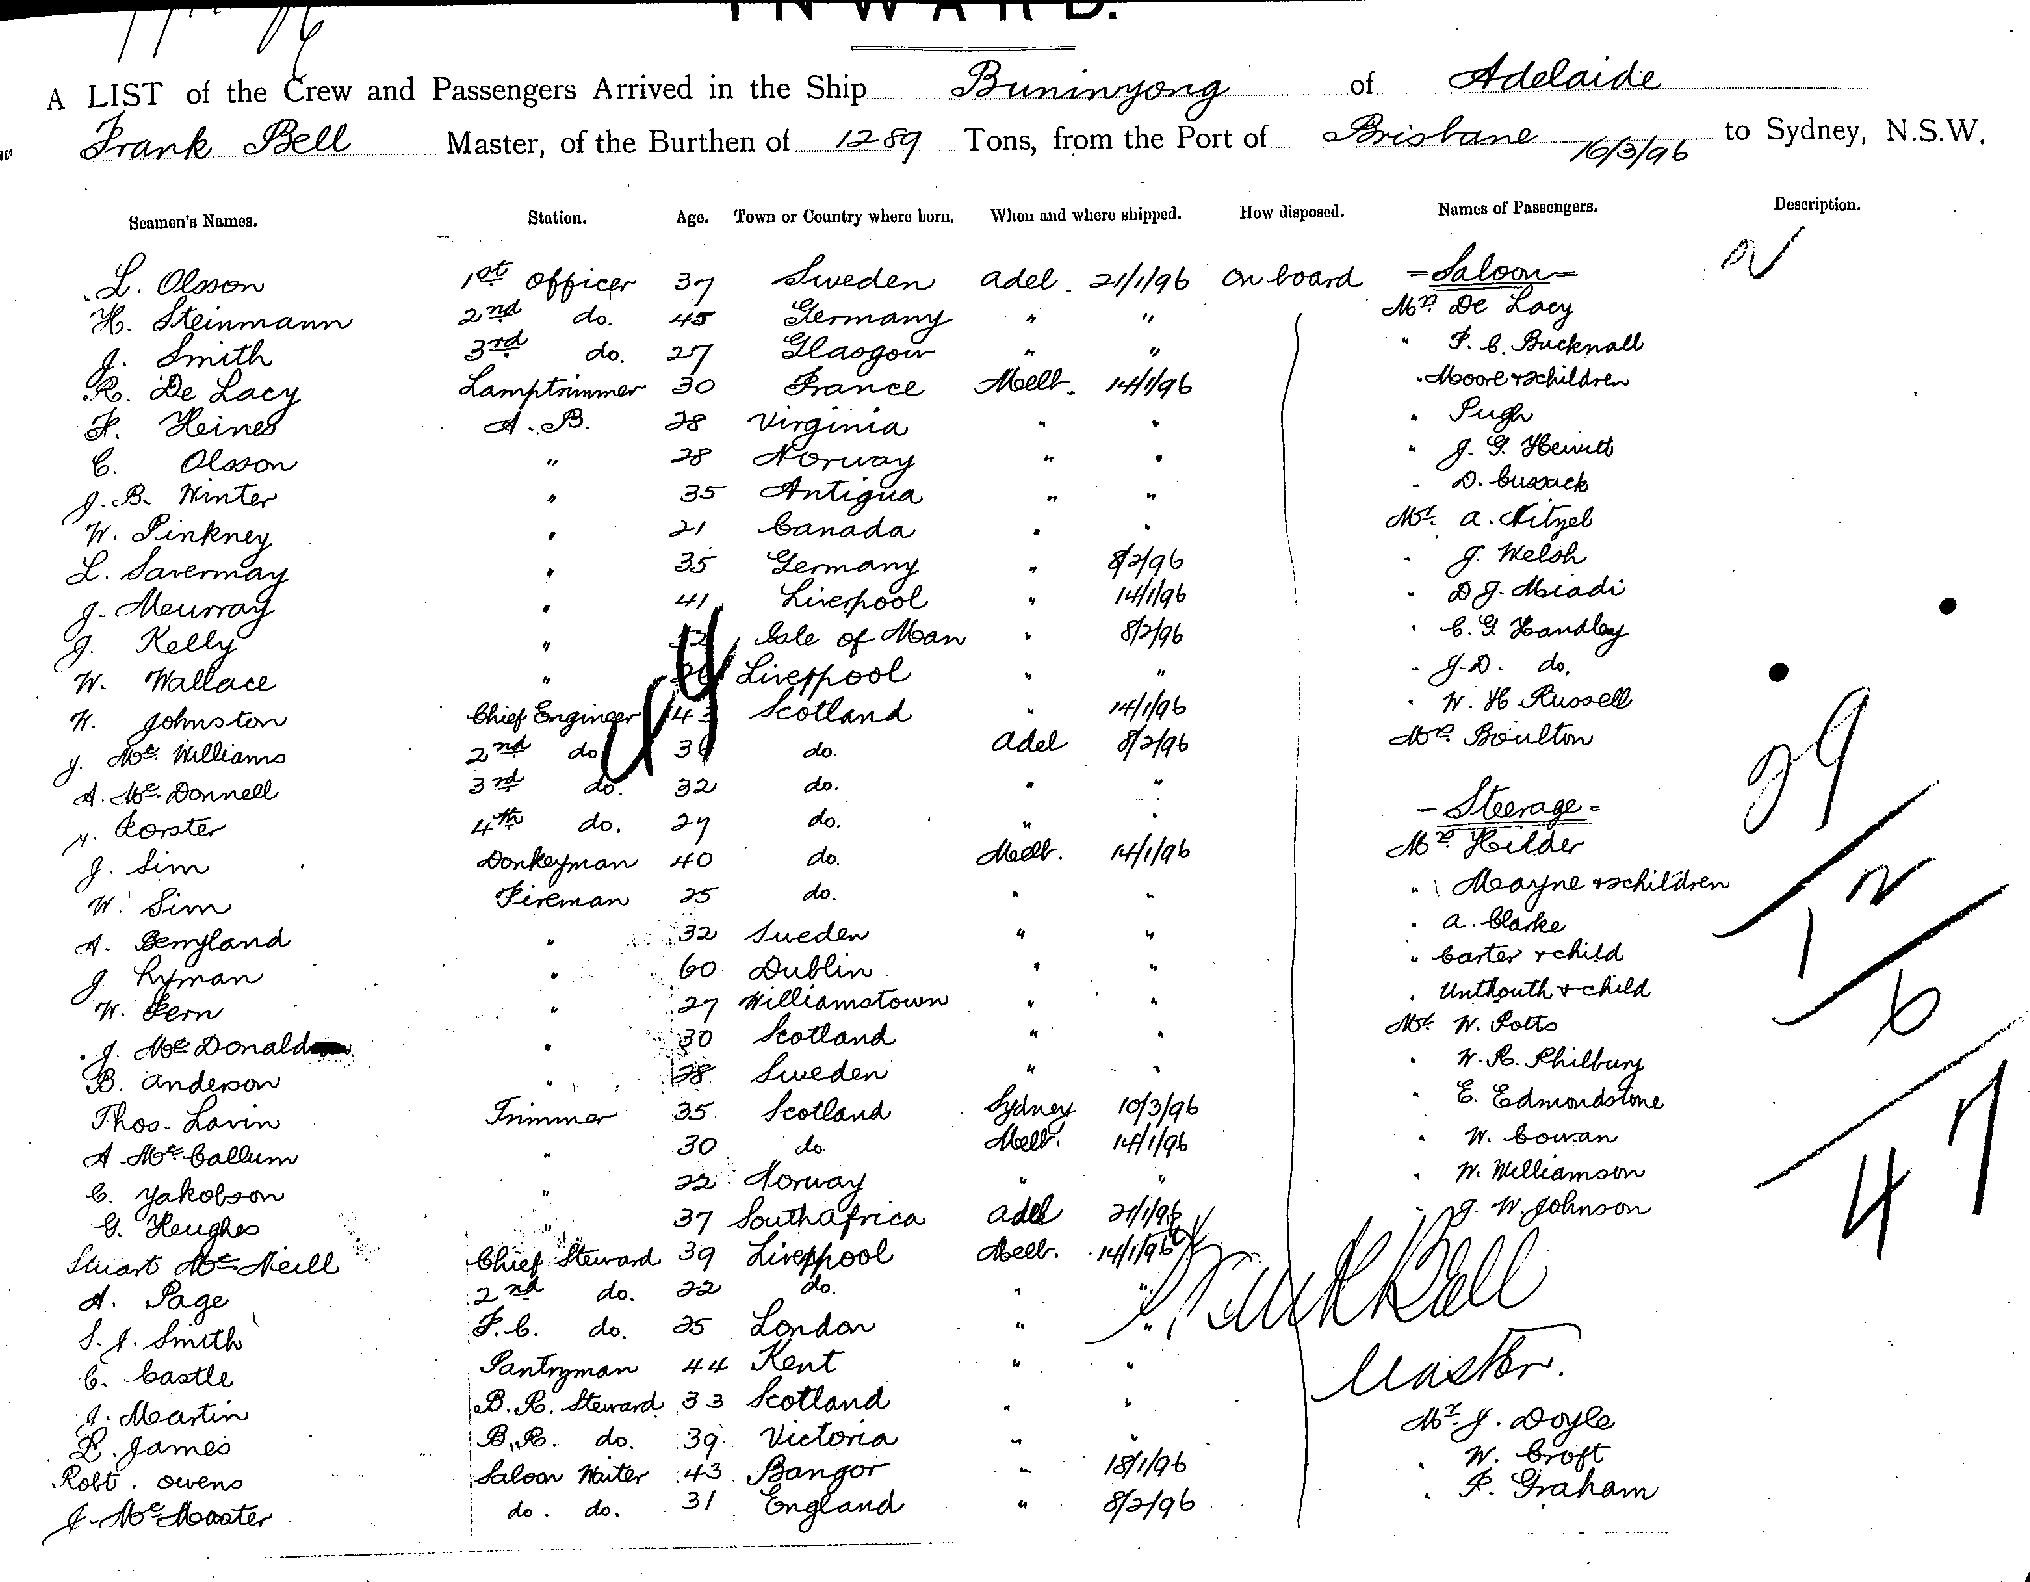 INWARD.
A LIST of the Crew and Passengers Arrived in the Ship Buninyong of Adelaide
Frank Bell Master, of the Burthen of 1289 Tons, from the Port of Brisbane 16/3/96 to Sydney, N.S.W.
Seamen's Names. Station. Age. Town or Country where born. When and where shipped. How disposed. Names of Passengers. Description.
L. Olsson 1st Officer 37 Sweden Adel. 21/1/96 On board - Saloon -
H. Steinmann 2nd do. 45 Germany " " Mrs. De Lacy
J. Smith 3rd do. 27 Glasgow " " " F. C. Bucknall
R. De Lacy Lamptrimmer 30 France Melb. 14/1/96 " Moore & children
F. Heines A.B. 28 Virginia " " " Pugh
C. Olsson " 28 Norway " " " J. G. Hewitt
J. B. Winter " 35 Antigua " " " D. Cusack
W. Pinkney " 21 Canada " " Mr. A. Nitzel
L. Savermay " 35 Germany " 8/2/96 " J. Welsh
J. Meurray " 41 Liverpool " 14/1/96 " D. J. Miadi
J. Kelly " Isle of Man " 8/2/96 " C. G. Handley
W. Wallace " Liverpool " " " J. D. do.
W. Johnston Chief Engineer 43 Scotland " 14/1/96 " W. H. Russell
J. McWilliams 2nd do. do. Adel 8/2/96 Mrs. Boulton
A. McDonnell 3rd do. 32 do. " " 29
- Steerage -
Forster 4th do. 27 do. " "
J. Sim Donkeyman 40 do. Melb. 14/1/96 Mrs. Hilder
W. Sim Fireman 25 do. " " " Mayne & children 12
A. Berryland " 32 Sweden " " " A. Clarke
J. Lyman " 60 Dublin " " " Carter & child
W. Fern " 27 Williamstown " " " Unthouth & child 6
J. McDonald " 30 Scotland " " Mr. W. Potts
B. Anderson " 28 Sweden " " " W. R. Philbury
Thos. Lavin Trimmer 35 Scotland Sydney 10/3/96 " E. Edmondstone
A McCallum " 30 do. Melb. 14/1/96 " W. Cowan
C. Yakobson " 22 Norway " " " W. Williamson 47
G. Heughes " 37 South Africa Adel 21/1/96 " J. W. Johnson
Stuart McNeill Chief Steward 39 Liverpool Melb. 14/1/96
A. Page 2nd do. 22 do. " " Frank Bell
S. J. Smith F.C. do. 25 London " "
C. Castle Pantryman 44 Kent " " Master.
J. Martin B.R. Steward 33 Scotland " " Mr. J. Doyle
L. James B.R. do. 39 Victoria " " " W. Croft
Robt. Owens Saloon Waiter 43 Bangor " 18/1/96 " P. Graham
J. McMaster do. do. 31 England " 8/2/96